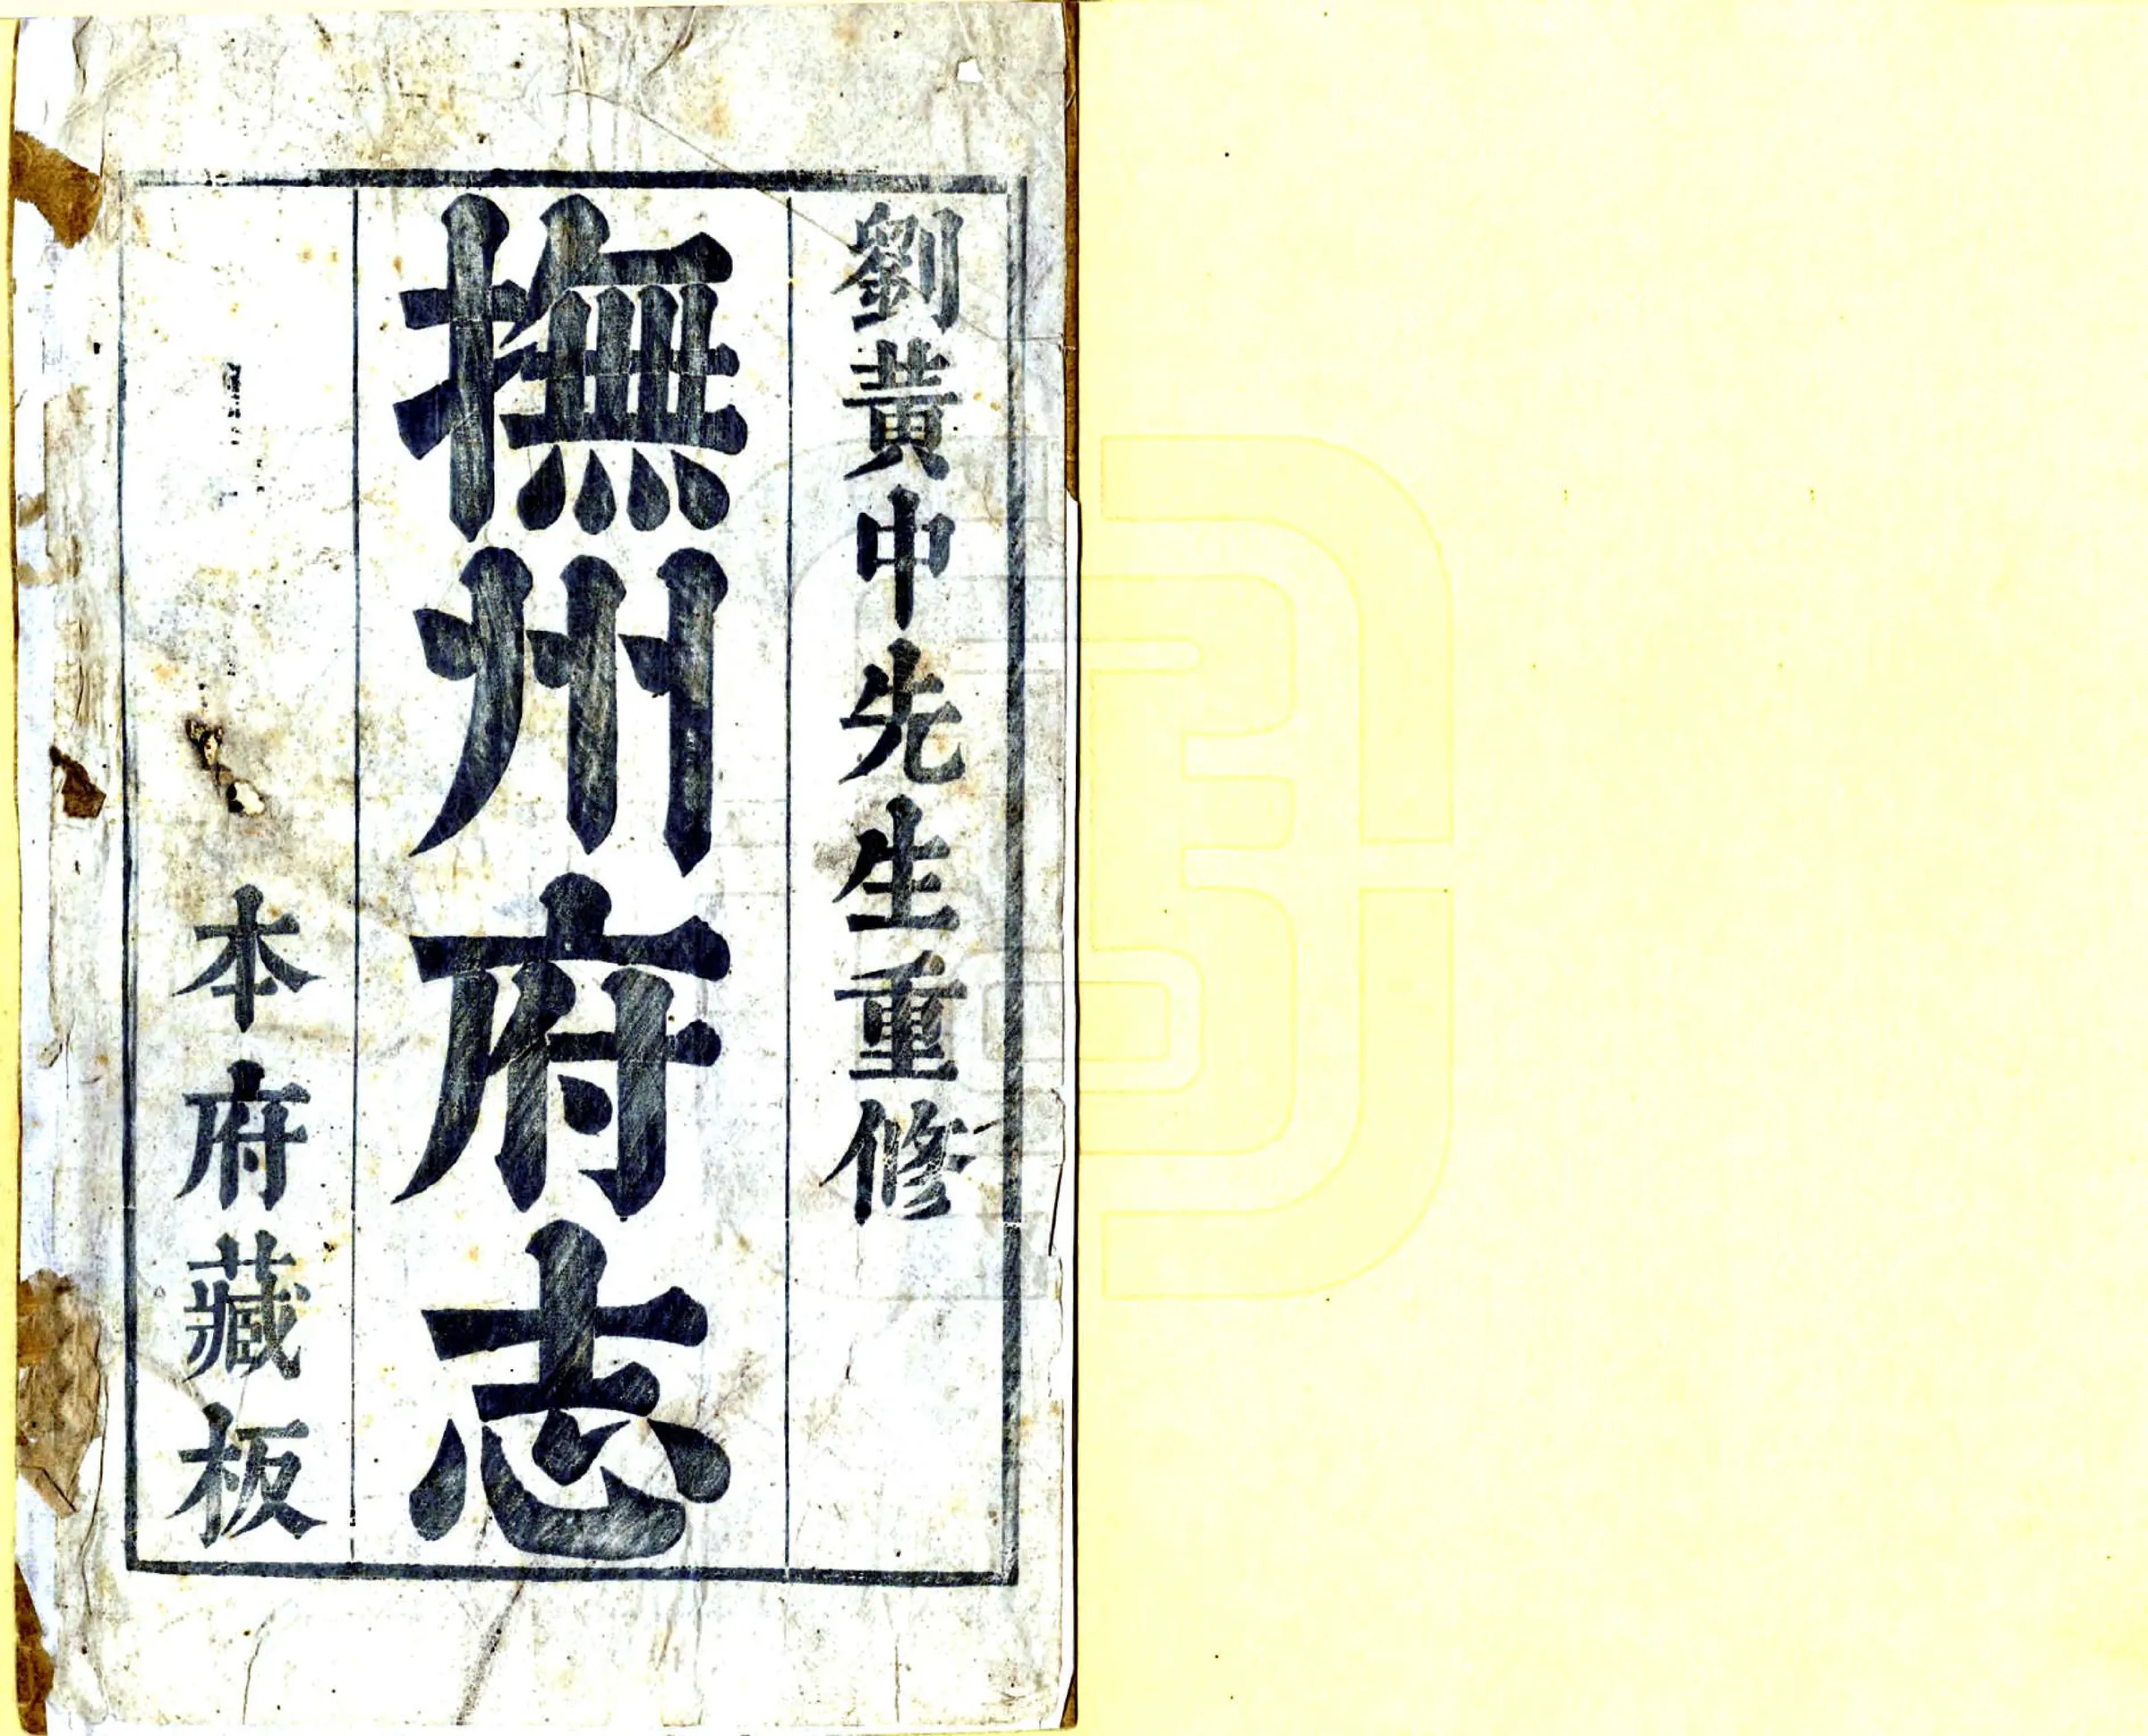 劉黃中先生重修
撫州府志
本府藏板